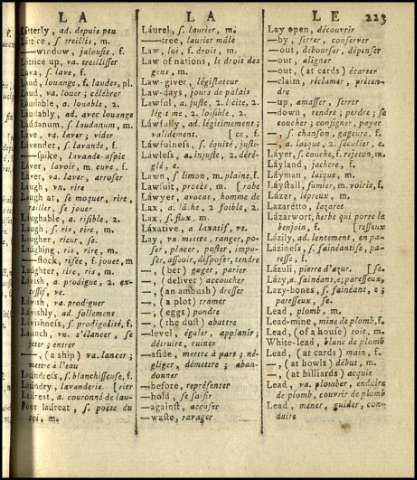 LA
LA
LE
223
Látterly, ad. depuis peu
Láttice, s. treillis, m.
—window, jalousie, f.
Láttice up, va. treillisser
Lava, s. lave, f.
Laud, louange, f. laudes, pl.
Laud, va. louer; célébrer
Láudable, a. louable, 2.
Láudably, ad. avec louange
Láuddanum, s. laudanum, m.
Lave, va. laver; vider
Lávender, s. lavande, f.
—spike, lavande-aspic
Láver, lavoir, m. cuve, f.
Láver, va. laver, arroser
Laugh, vn. rire
Laugh at, se moquer, rire,
railler, se jouer
Láughable, a. risible, 2.
Laugh, s. ris, rire, m.
Láugher, rieur, se.
Láughing, ris, rire, m.
—stock, risée, f. jouet, m
Láughter, rire, ris, m.
Lávish, a. prodigue, 2. ex-
cessif, ve.
Lávish, va. prodiguer
Lávishly, ad. follement
Lávishness, s. prodigalité, f.
Launch, vn. s'élancer, se
jeter; entrer
—, (a ship) va. lancer;
mettre à l'eau
Láundress, s. blanchisseuse, f.
Láundry, lavanderie. [rier
Láureat, a. couronné de lau-
Poet laúreat, s. poëte du
roi, m.
Láurel, s. laurier, m.
—tree, laurier mâle
Law, loi, f. droit, m.
Law of nations, le droit des
gens, m.
Law-giver, législateur
Law-days, jours de palais
Láwful, a. juste, 2. licite, 2.
légitime, 2. loisible, 2.
Láwfully, ad. légitimement;
validement. [ce, f.
Láwfulness, s. équité, justi-
Láwless, a. injuste, 2. déré-
glé, e.
Lawn, s. limon, m. plaine, f.
Láwsuit, procès, m. [robe
Láwyer, avocat, homme de
Lax, a. lâche, 2. foible, 2.
Lax, s. flux, m.
Láxative, a. laxatif, ve.
Lay, va. mettre, ranger, po-
ser, placer, poster, impu-
ser, assoupir, disposer, tendre
—, (bet) gager, parier
—, (deliver) accoucher
—, (an ambush) dresser
—, (a plot) tramer
—, (eggs) pondre
—, (the dust) abattre
—level, égaler, applanir;
détruire, ruiner
—aside, mettre à part; né-
gliger, démettre; aban-
donner
—before, représenter
—hold, se saisir
—against, accuser
—waste, ravager
Lay open, découvrir
—by, serrer, conserver
—out, débourser, dépenser
—out, aligner
—out, (at cards) écarter
—claim, réclamer, préten-
dre
—up, amasser, serrer
—down, rendre; perdre; se
coucher; consigner, payer
—, s. chanson, gageure, f.
—, a. laïque, 2. séculier, e.
Láyer, s. couche, f. rejeton, m.
Láyland, jachère, f.
Láyman, laïque, m.
Láystall, fumier, m. voirie, f.
Lázer, lépreux, m.
Lazarétto, lazaret
Lázarwort, herbe qui porte le
benjoin, f. [resseux
Lázily, ad. lentement, en pa-
Láziness, s. fainéantise, pa-
resse, f.
Lázuli, pierre d'azur. [se.
Lázy, a. fainéant, e; paresseux,
Lazy-bones, s. fainéant, e;
paresseux, se.
Lead, plomb, m.
Lead-mine, mine de plomb, f.
Lead, (of a house) toit, m.
White-lead, blanc de plomb
Lead, (at cards) main, f.
—, (at bowls) début, m.
—, (at billiards) acquit
Lead, va. plomber, enduire
de plomb, couvrir de plomb
Lead, mener, guider, con-
duire